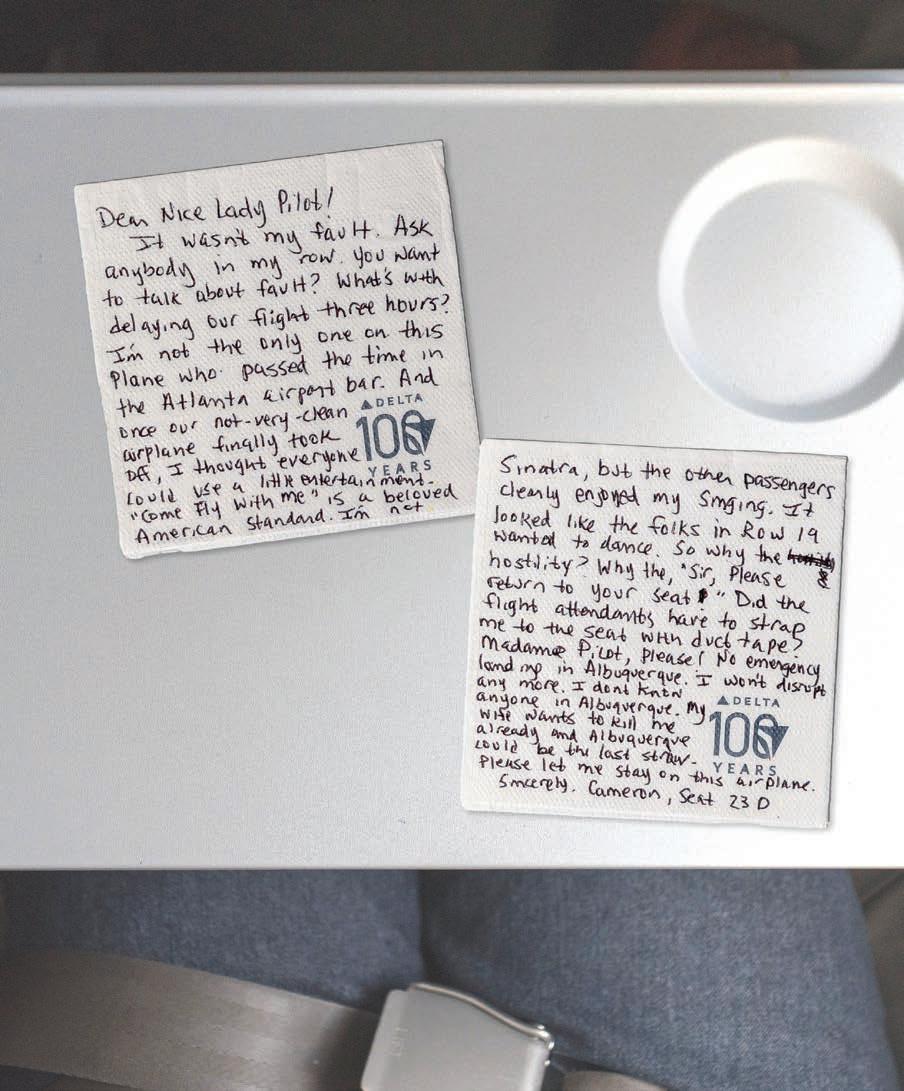 Dear Nice Lady Pilot!
It wasn't my fault. Ask
anybody in my row. You want
to talk about fault? What's with
delaying our flight three hours?
I'm not the only one on this
Plane who passed the time in
the Atlanta airport bar. And
once our not-very-clean
airplane finally took
off, I thought everyone
could use a little entertainment.
"Come Fly with me" is a beloved
American standard. I'm not
DELTA
100
YEARS
Sinatra, but the other passengers
clearly enjoyed my singing. It
looked like the folks in Row 19
wanted to dance. So why the
hostility? Why the, "Sir, Please
return to your seat!" Did the
flight attendants have to strap
me to the seat with duct tape?
Madame Pilot, please! No emergency
landing in Albuquerque. I won't disrupt
any more. I dont know
anyone in Albuquerque. My
wife wants to kill me
already and Albuquerque
could be the last straw.
Please let me stay on this airplane.
Sincerely, Cameron, Seat 23 D
DELTA
100
YEARS